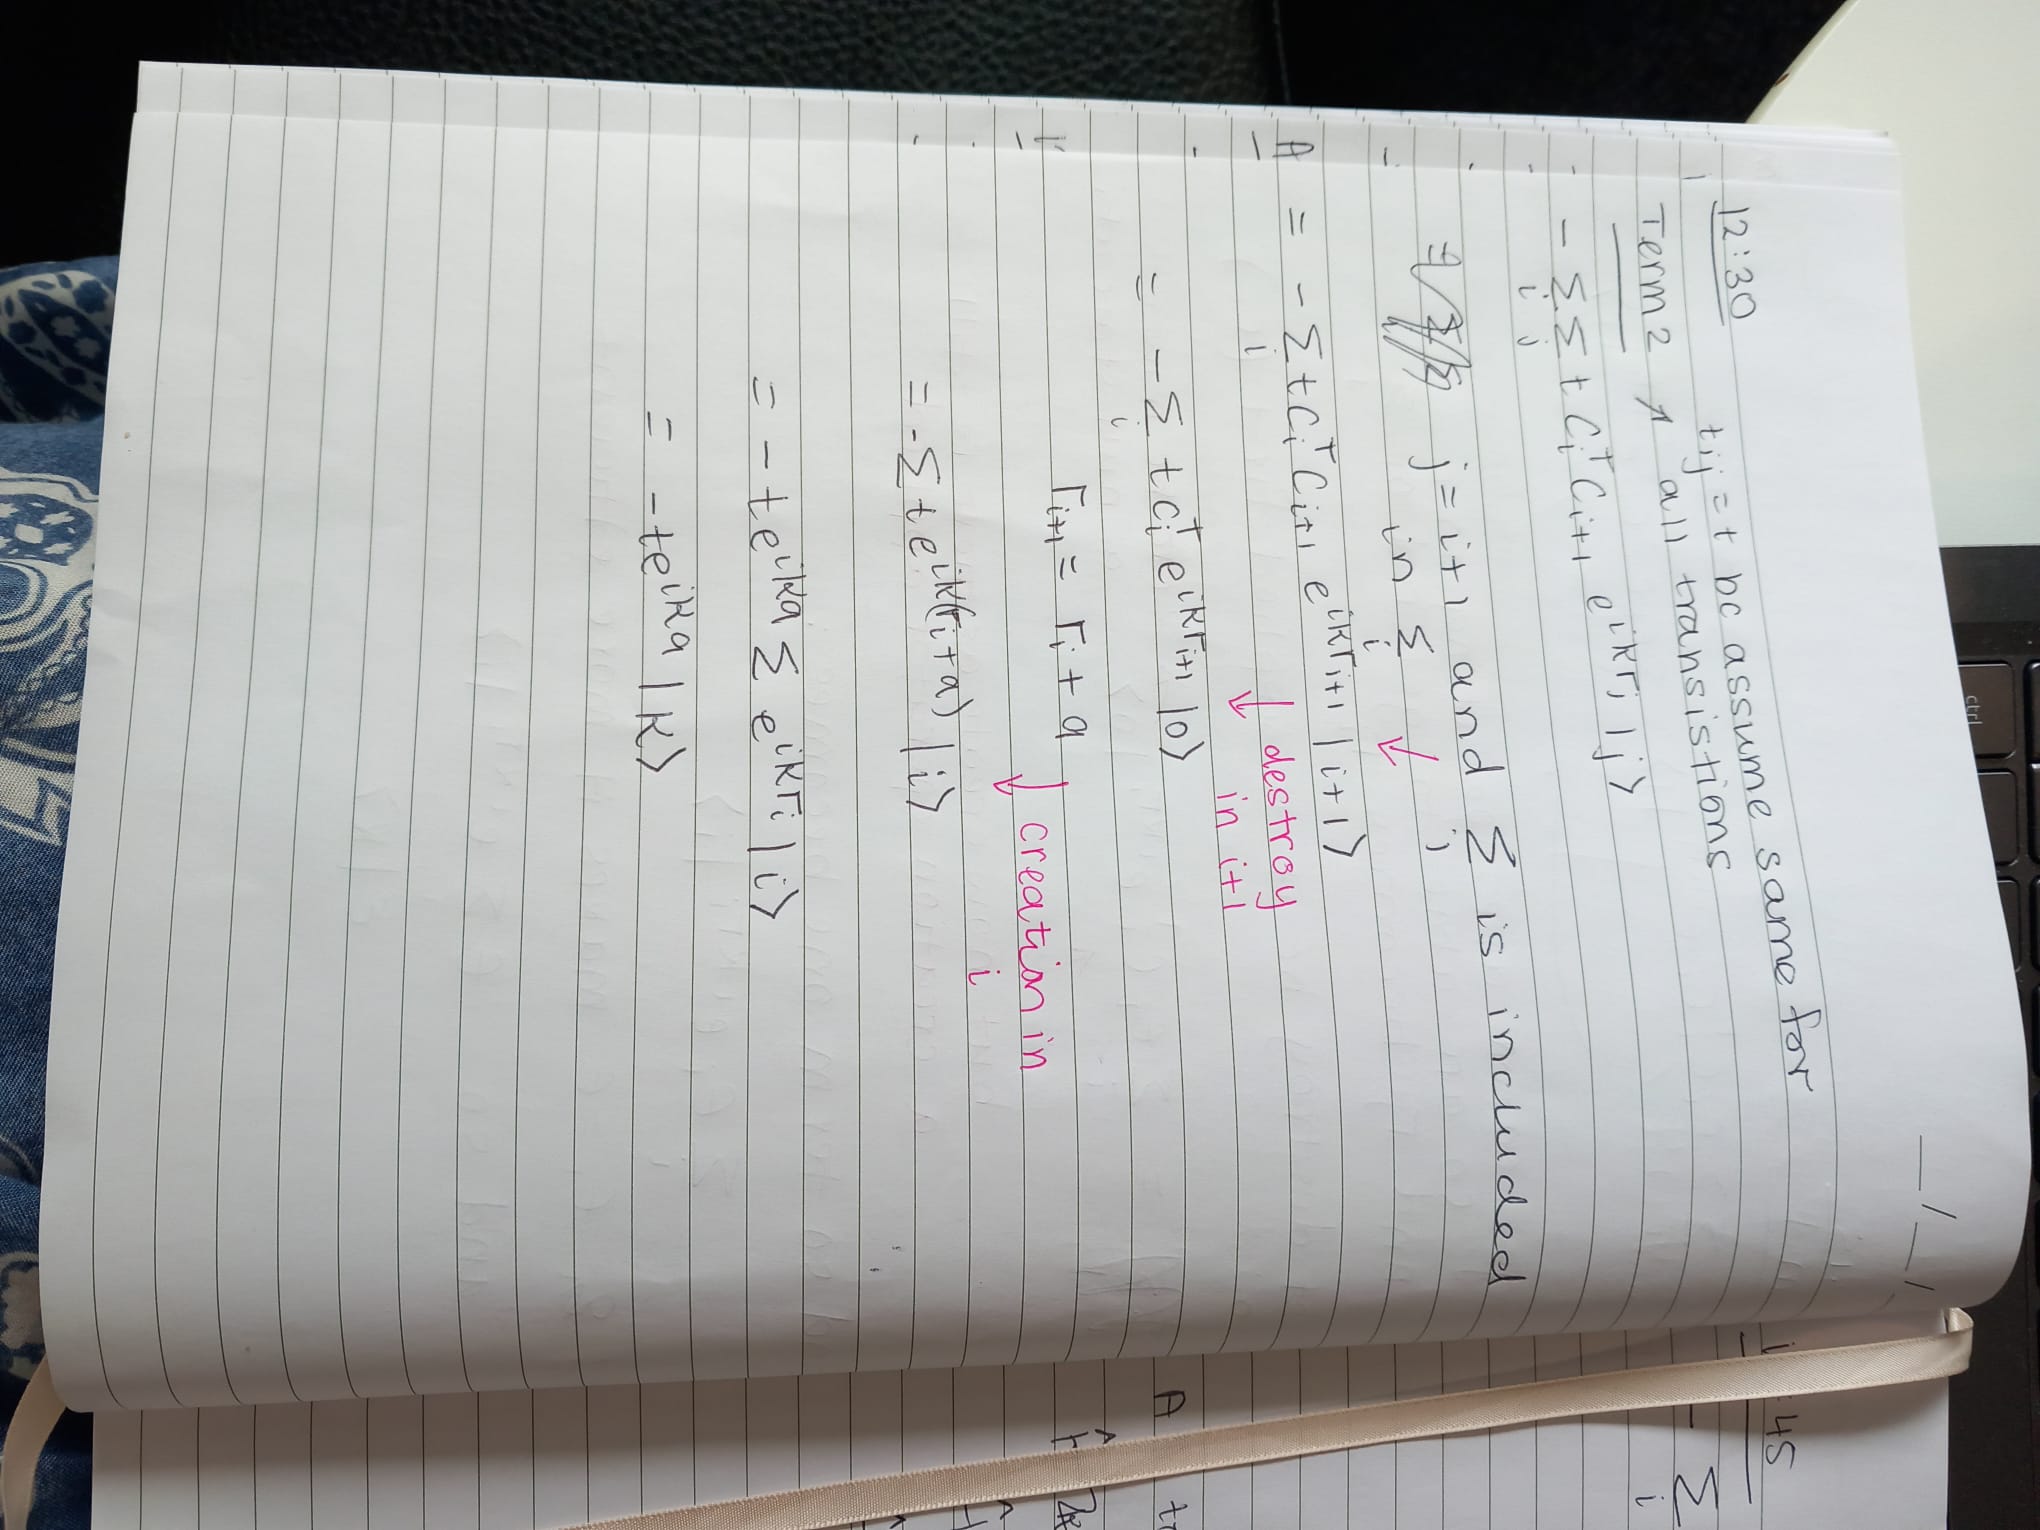 ctrl
__/__/
12:30
tij = t bc assume same for
Term 2 ↗ all transistions
- Σ_i Σ_j t C_i^† C_{i+1} e^{ikr_j} |j⟩
j = i+1 and Σ_j is included
in Σ_i
A = - Σ_i t C_i^† C_{i+1} e^{ikr_{i+1}} |i+1⟩
↓ destroy
in i+1
= - Σ_i t c_i^† e^{ikr_{i+1}} |0⟩
r_{i+1} = r_i + a
↓ creation in
i
= - Σ t e^{ik(r_i+a)} |i⟩
= - t e^{ika} Σ e^{ikr_i} |i⟩
= - t e^{ika} |k⟩
: 45
- Σ_i
A